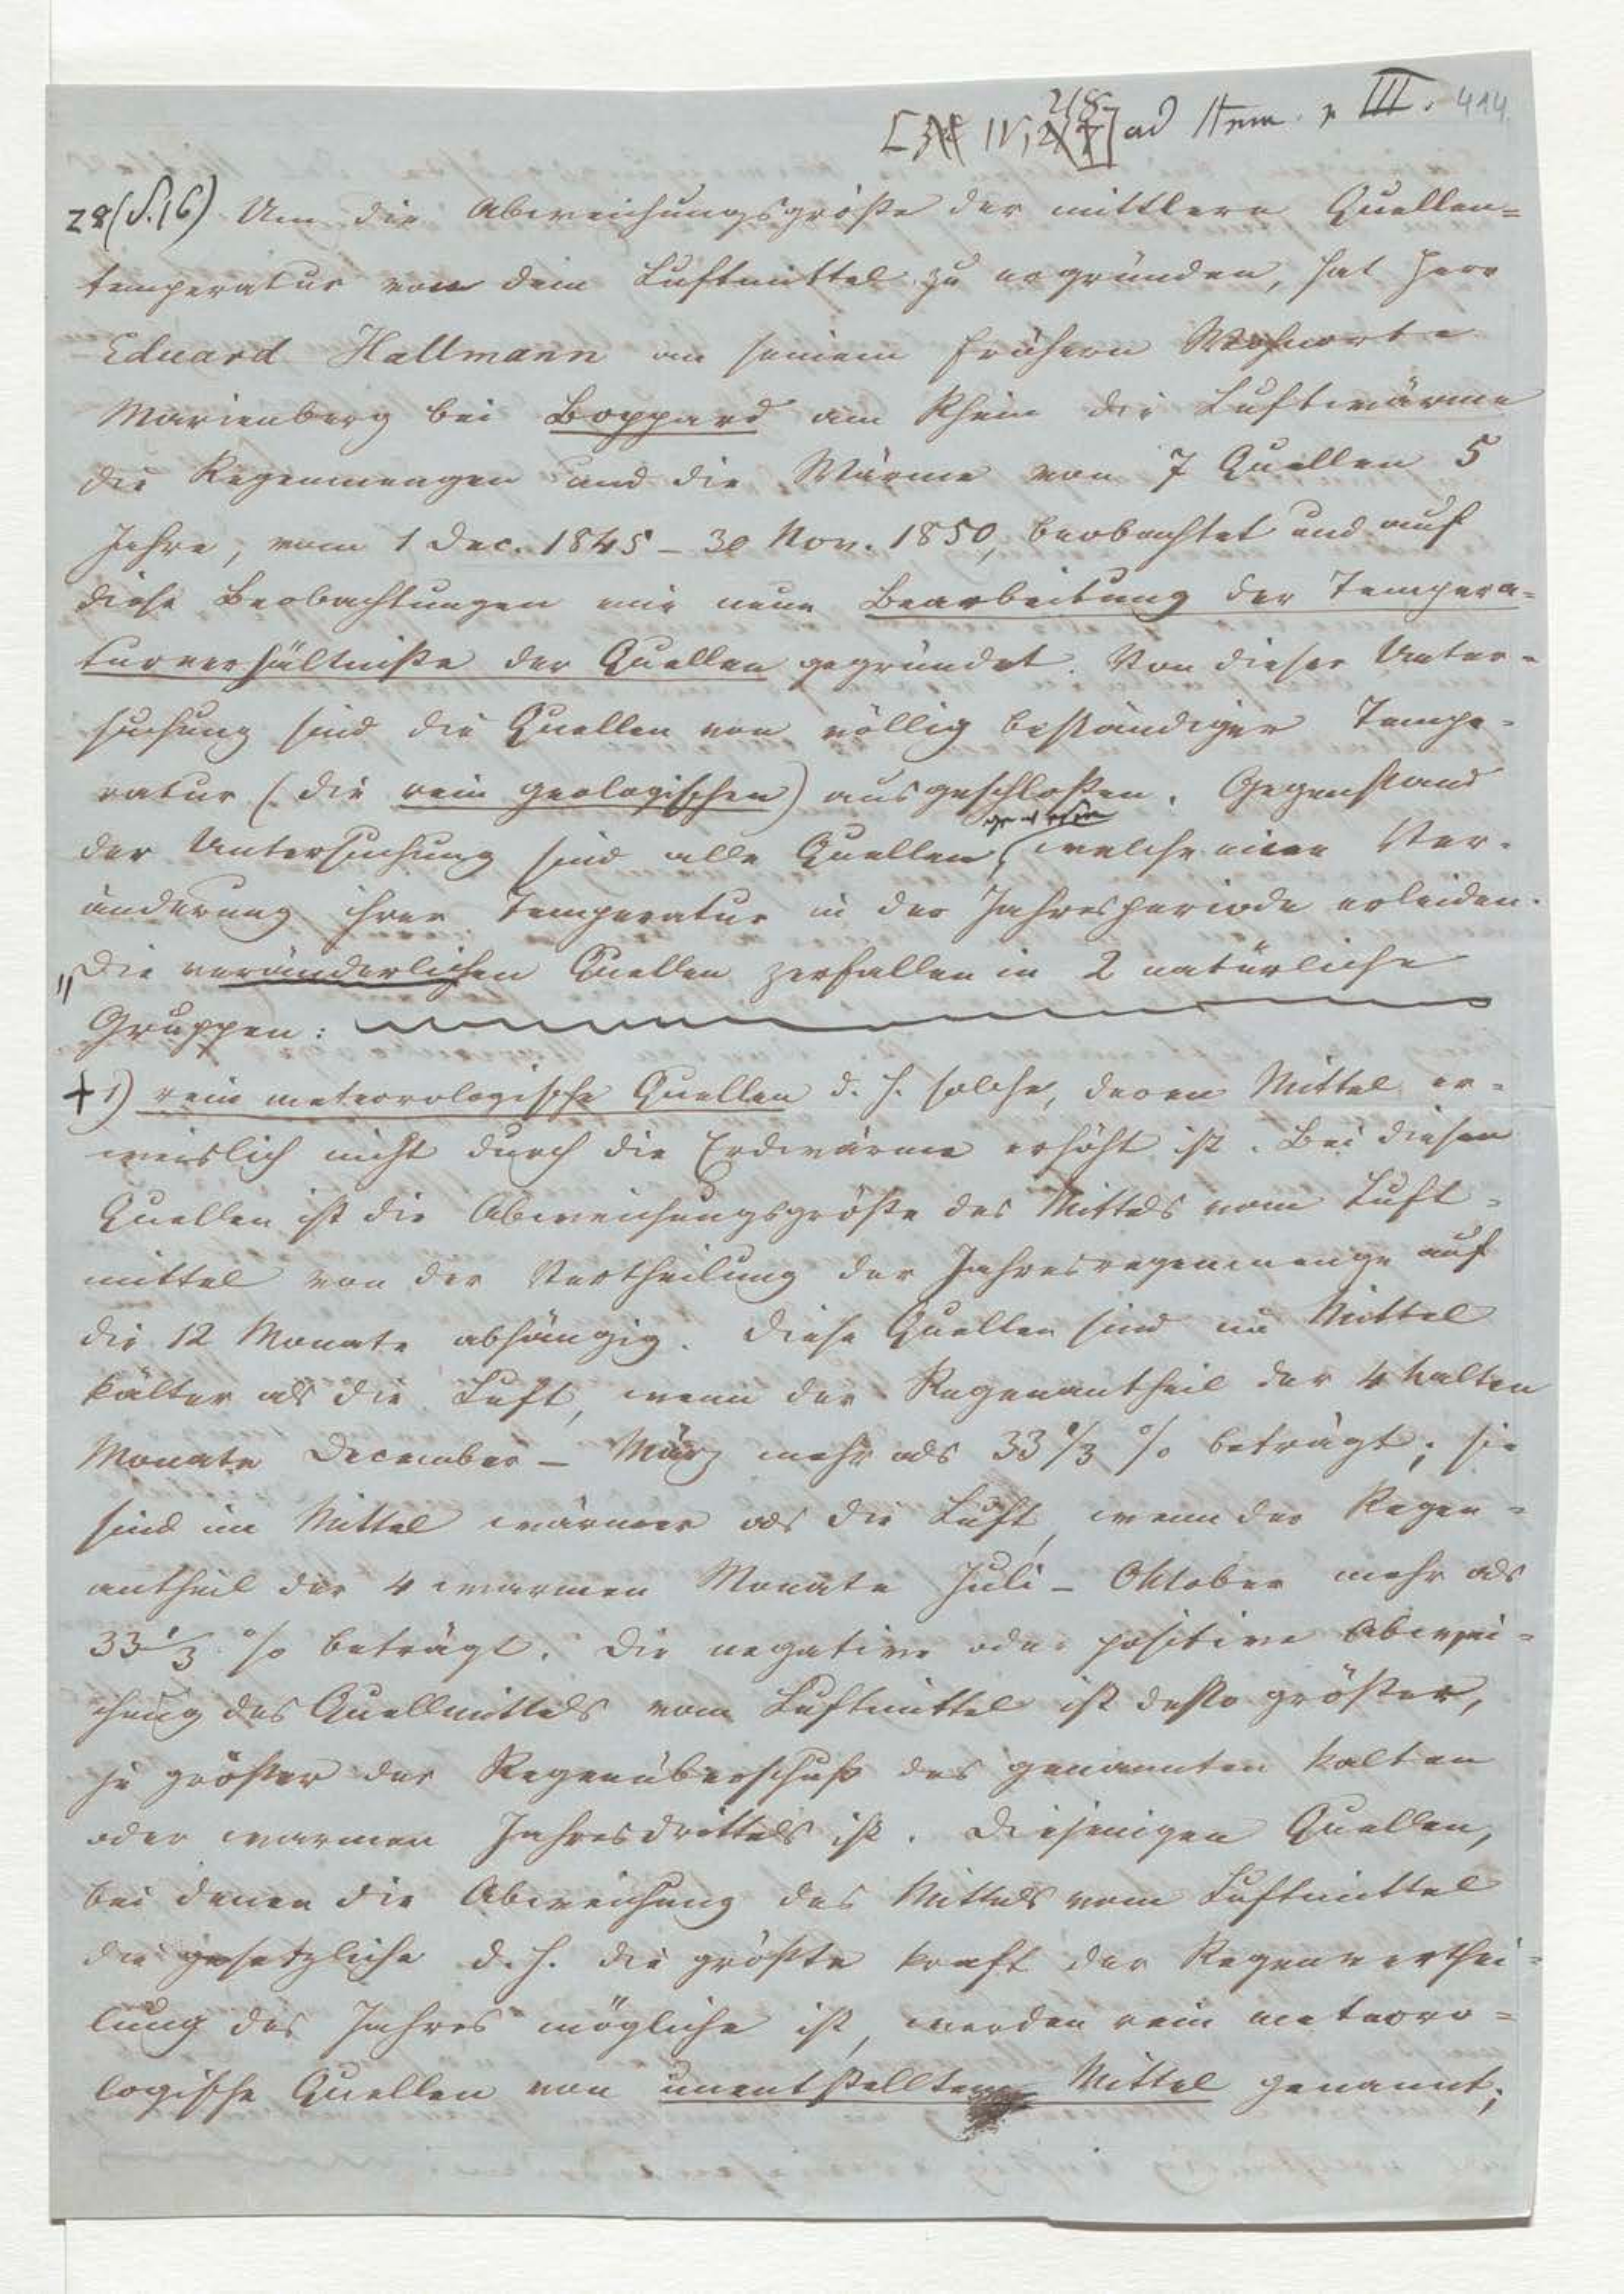 IV, 218 ad III. 414
28 (S. 16) Um die Abweichungsgröße der mittlern Quellen=
temperatur von dem Luftmittel zu ergründen, hat Herr
Eduard Hallmann an seinem frühern Wohnorte
Marienberg bei Boppard am Rhein die Luftwärme
die Regenmengen und die Wärme von 7 Quellen 5
Jahre, vom 1 Dec. 1845 – 30 Nov. 1850, beobachtet und auf
diese Beobachtungen eine neue Bearbeitung der Tempera=
turverhältniße der Quellen gegründet. Von dieser Unter=
suchung sind die Quellen von völlig beständiger Tempe=
ratur (die rein geologischen) ausgeschloßen. Gegenstand
gewesen
der Untersuchung sind alle Quellen, welche eine Ver=
änderung ihrer Temperatur in der Jahresperiode erleiden.
„Die veränderlichen Quellen zerfallen in 2 natürliche
Gruppen:
+ 1) rein meteorologische Quellen d. h. solche, deren Mittel er=
weislich nicht durch die Erdwärme erhöht ist. Bei diesen
Quellen ist die Abweichungsgröße des Mittels vom Luft=
mittel von der Vertheilung der Jahresregenmenge auf
die 12 Monate abhängig. Diese Quellen sind im Mittel
kälter als die Luft, wenn der Regenantheil der 4 kalten
Monate December – März mehr als 33 1/3 % beträgt; sie
sind im Mittel wärmer als die Luft, wenn der Regen=
antheil der 4 warmen Monate Juli – Oktober mehr als
33 1/3 % beträgt. Die negative oder positive Abwei=
chung des Quellmittels vom Luftmittel ist desto größer,
je größer der Regenüberschuß des genannten kalten
oder warmen Jahresdrittels ist. Diejenigen Quellen,
bei denen die Abweichung des Mittels vom Luftmittel
die gesetzliche d. h. die größte kraft der Regenverthei=
lung des Jahres mögliche ist, werden rein meteoro=
logische Quellen von unentstelltem Mittel genannt;